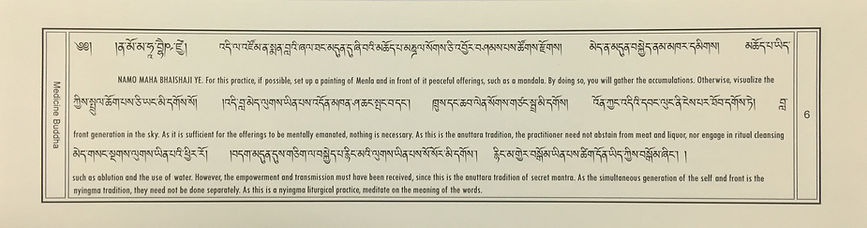 ༄༅། །ན་མོ་མ་ཧཱ་བྷཻ་ཥ་ཛྱེ། འདི་ལ་འཇོམ་ན་སྨན་བླའི་ཞལ་ཐང་མདུན་དུ་ཞི་བའི་མཆོད་པ་མཎྜལ་སོགས་ཅི་འབྱོར་བཤམས་པས་ཚོགས་རྫོགས། མེད་ན་མདུན་བསྐྱེད་ནམ་མཁར་དམིགས། མཆོད་པ་ཡིད་
NAMO MAHA BHAISHAJI YE. For this practice, if possible, set up a painting of Menla and in front of it peaceful offerings, such as a mandala. By doing so, you will gather the accumulations. Otherwise, visualize the
ཀྱིས་སྤྲུལ་ཆོག་པས་ཅི་ཡང་མི་དགོས་སོ། །འདི་བླ་མེད་ལུགས་ཡིན་པས་འདོན་མཁན་ཤ་ཆང་སྤང་བ་དང་། ཁྲུས་དང་ཆབ་ལེན་སོགས་གཙང་སྦྲ་མི་དགོས། འོན་ཀྱང་འདིའི་དབང་ལུང་ནི་ངེས་པར་ཐོབ་དགོས་ཏེ། བླ་
front generation in the sky. As it is sufficient for the offerings to be mentally emanated, nothing is necessary. As this is the anuttara tradition, the practitioner need not abstain from meat and liquor, nor engage in ritual cleansing
མེད་གསང་སྔགས་ལུགས་ཡིན་པའི་ཕྱིར་རོ། །བདག་མདུན་དུས་གཅིག་ལ་བསྐྱེད་པ་རྙིང་མའི་ལུགས་ཡིན་པས་སོ་སོར་མི་དགོས། རྙིང་མ་གྱེར་བསྒོམ་ཡིན་པས་ཚིག་དོན་ཡིད་ཀྱིས་བསྒོམ་ཞིང་། །
such as ablution and the use of water. However, the empowerment and transmission must have been received, since this is the anuttara tradition of secret mantra. As the simultaneous generation of the self and front is the
nyingma tradition, they need not be done separately. As this is a nyingma liturgical practice, meditate on the meaning of the words.
Medicine Buddha
6